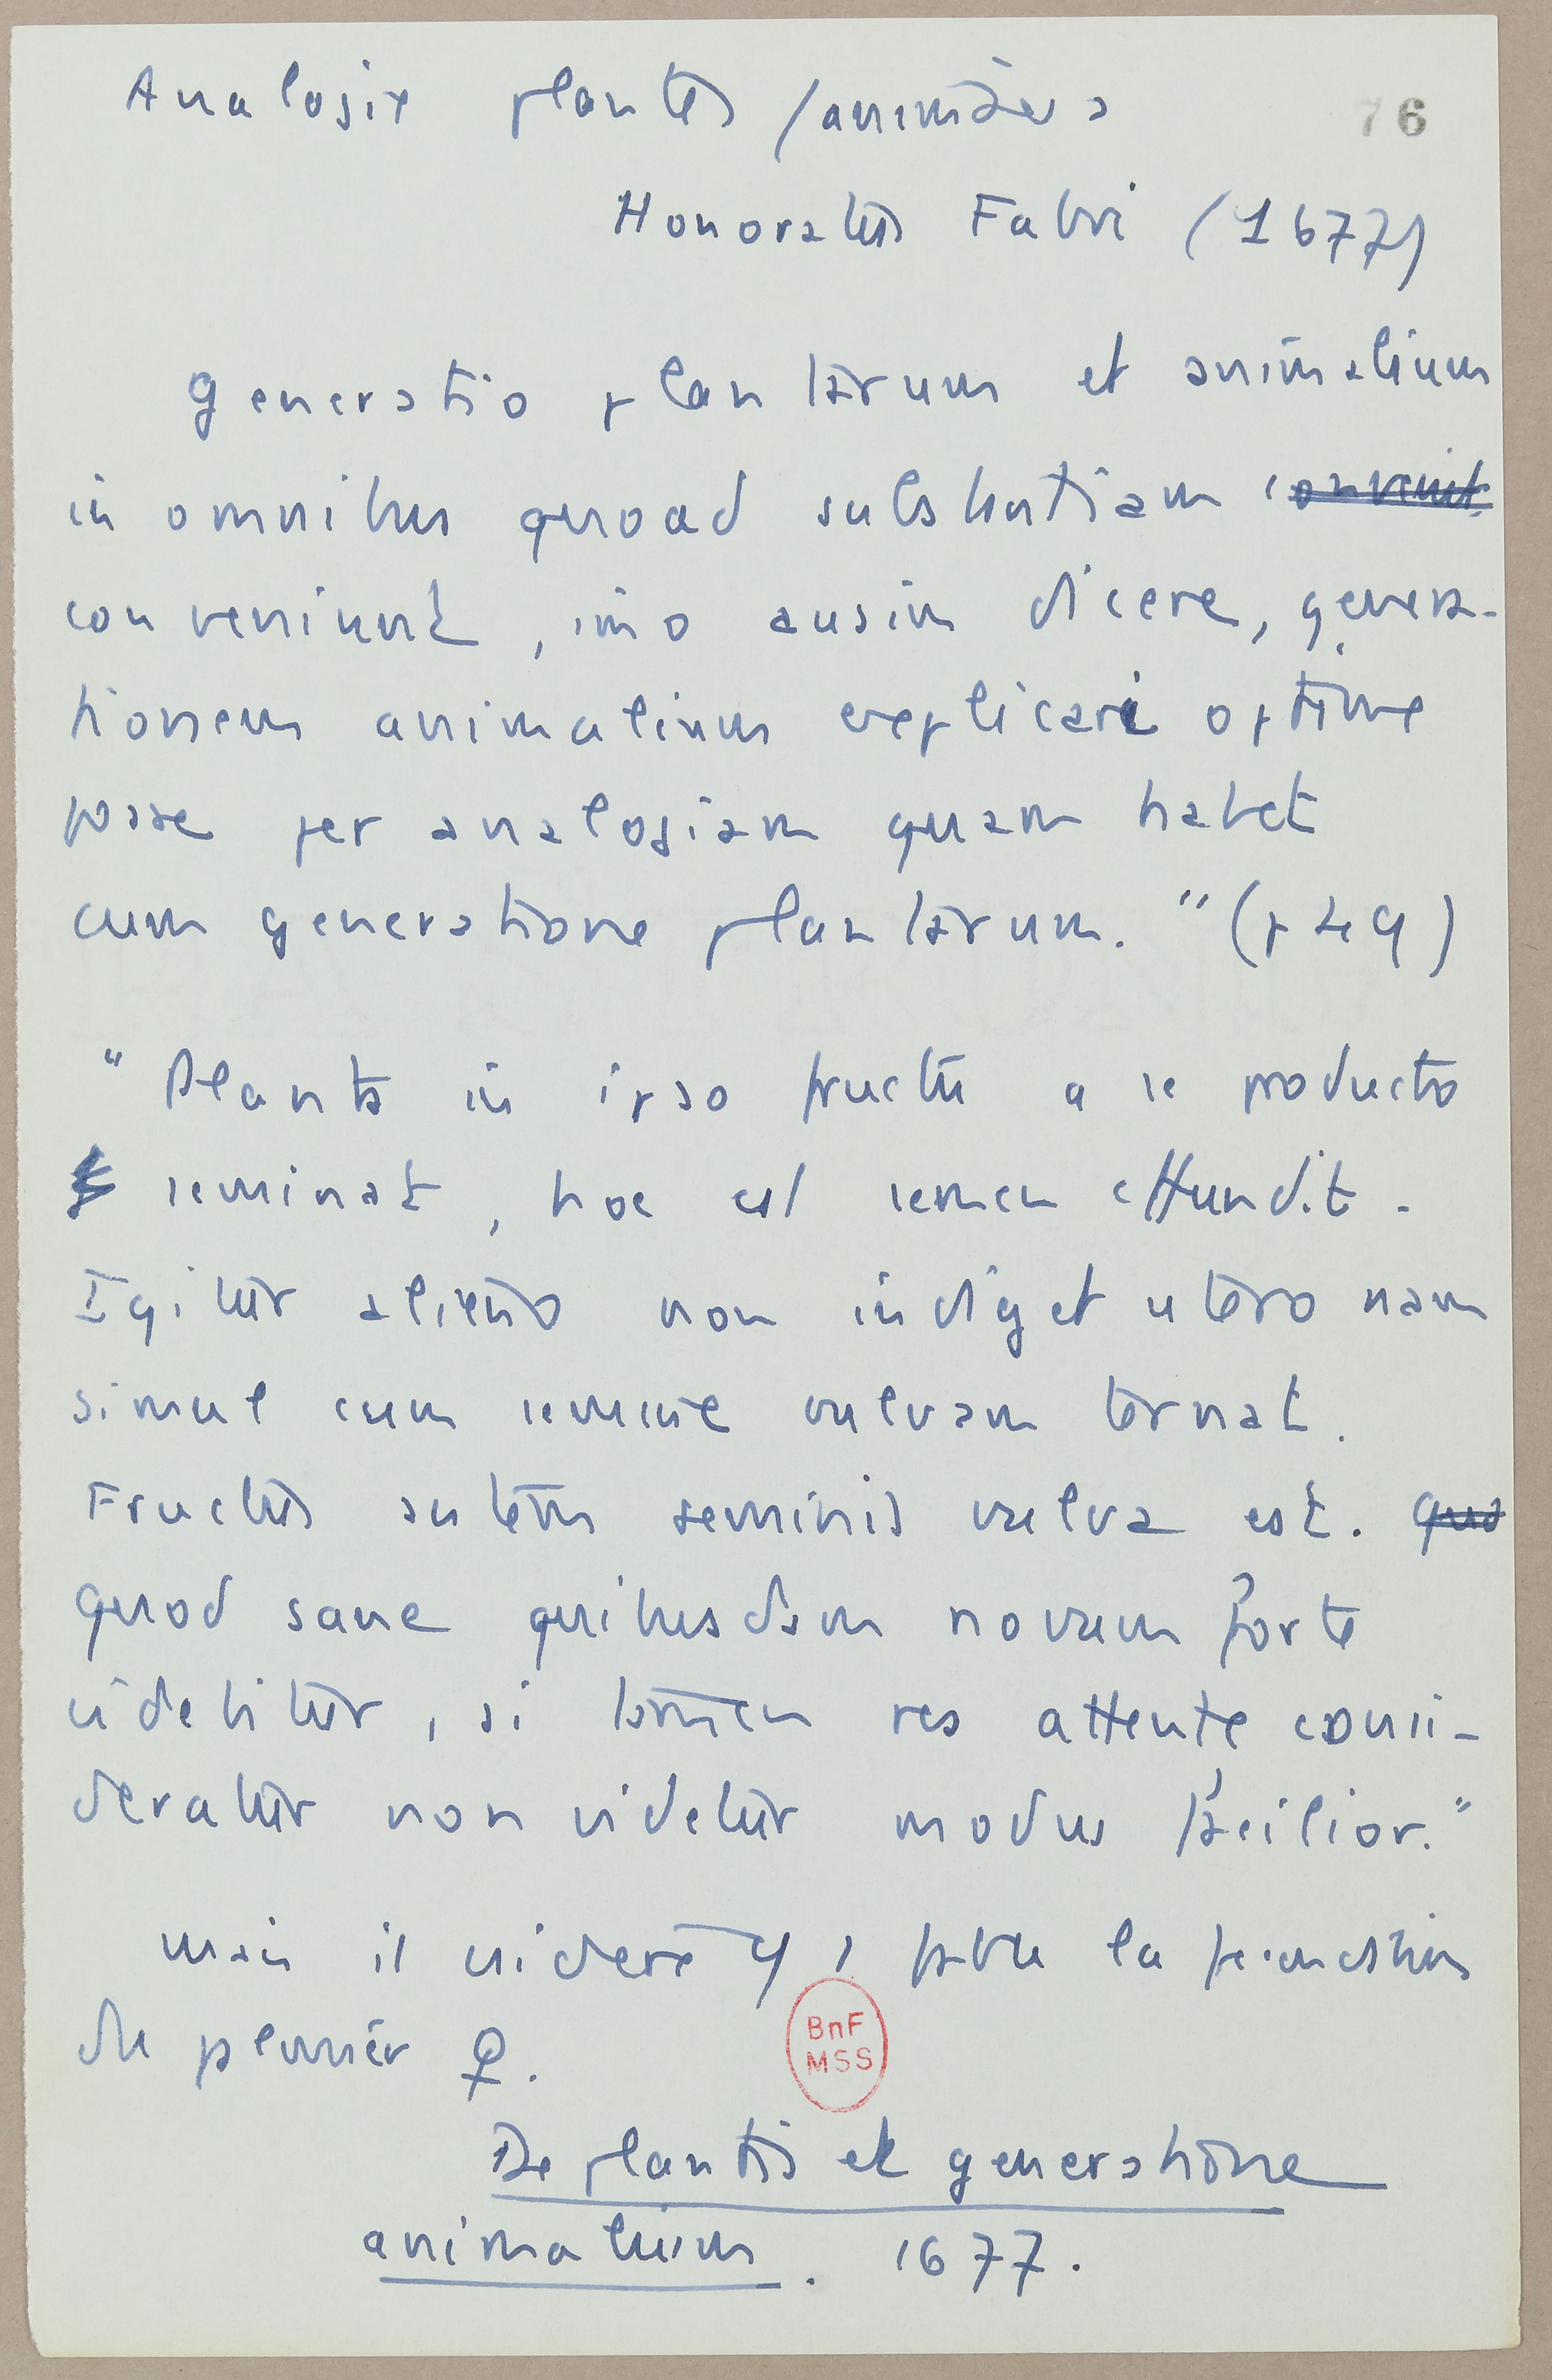 Analogie plantes / animaux
76
Honoratus Fabri (1677)
Generatio plantarum et animalium
in omnibus quoad substantiam convenit
conveniunt, imo ausim dicere, genera-
tionem animalium explicari optime
posse per analogiam quam habet
cum generatione plantarum." (p 49)
" Planta in ipso fructu a se producto
seminat, hoc est semen effundit.
Igitur alieno non indiget utero nam
simul cum semine vulvam format.
Fructus autem seminis vulva est. quo
quod sane quibusdam novum forte
videbitur, si tamen res attente consi-
deratur non videtur modus facilior."
Mais il
la
de
♀.
BnF
MSS
De plantis et generatione
animalium. 1677.